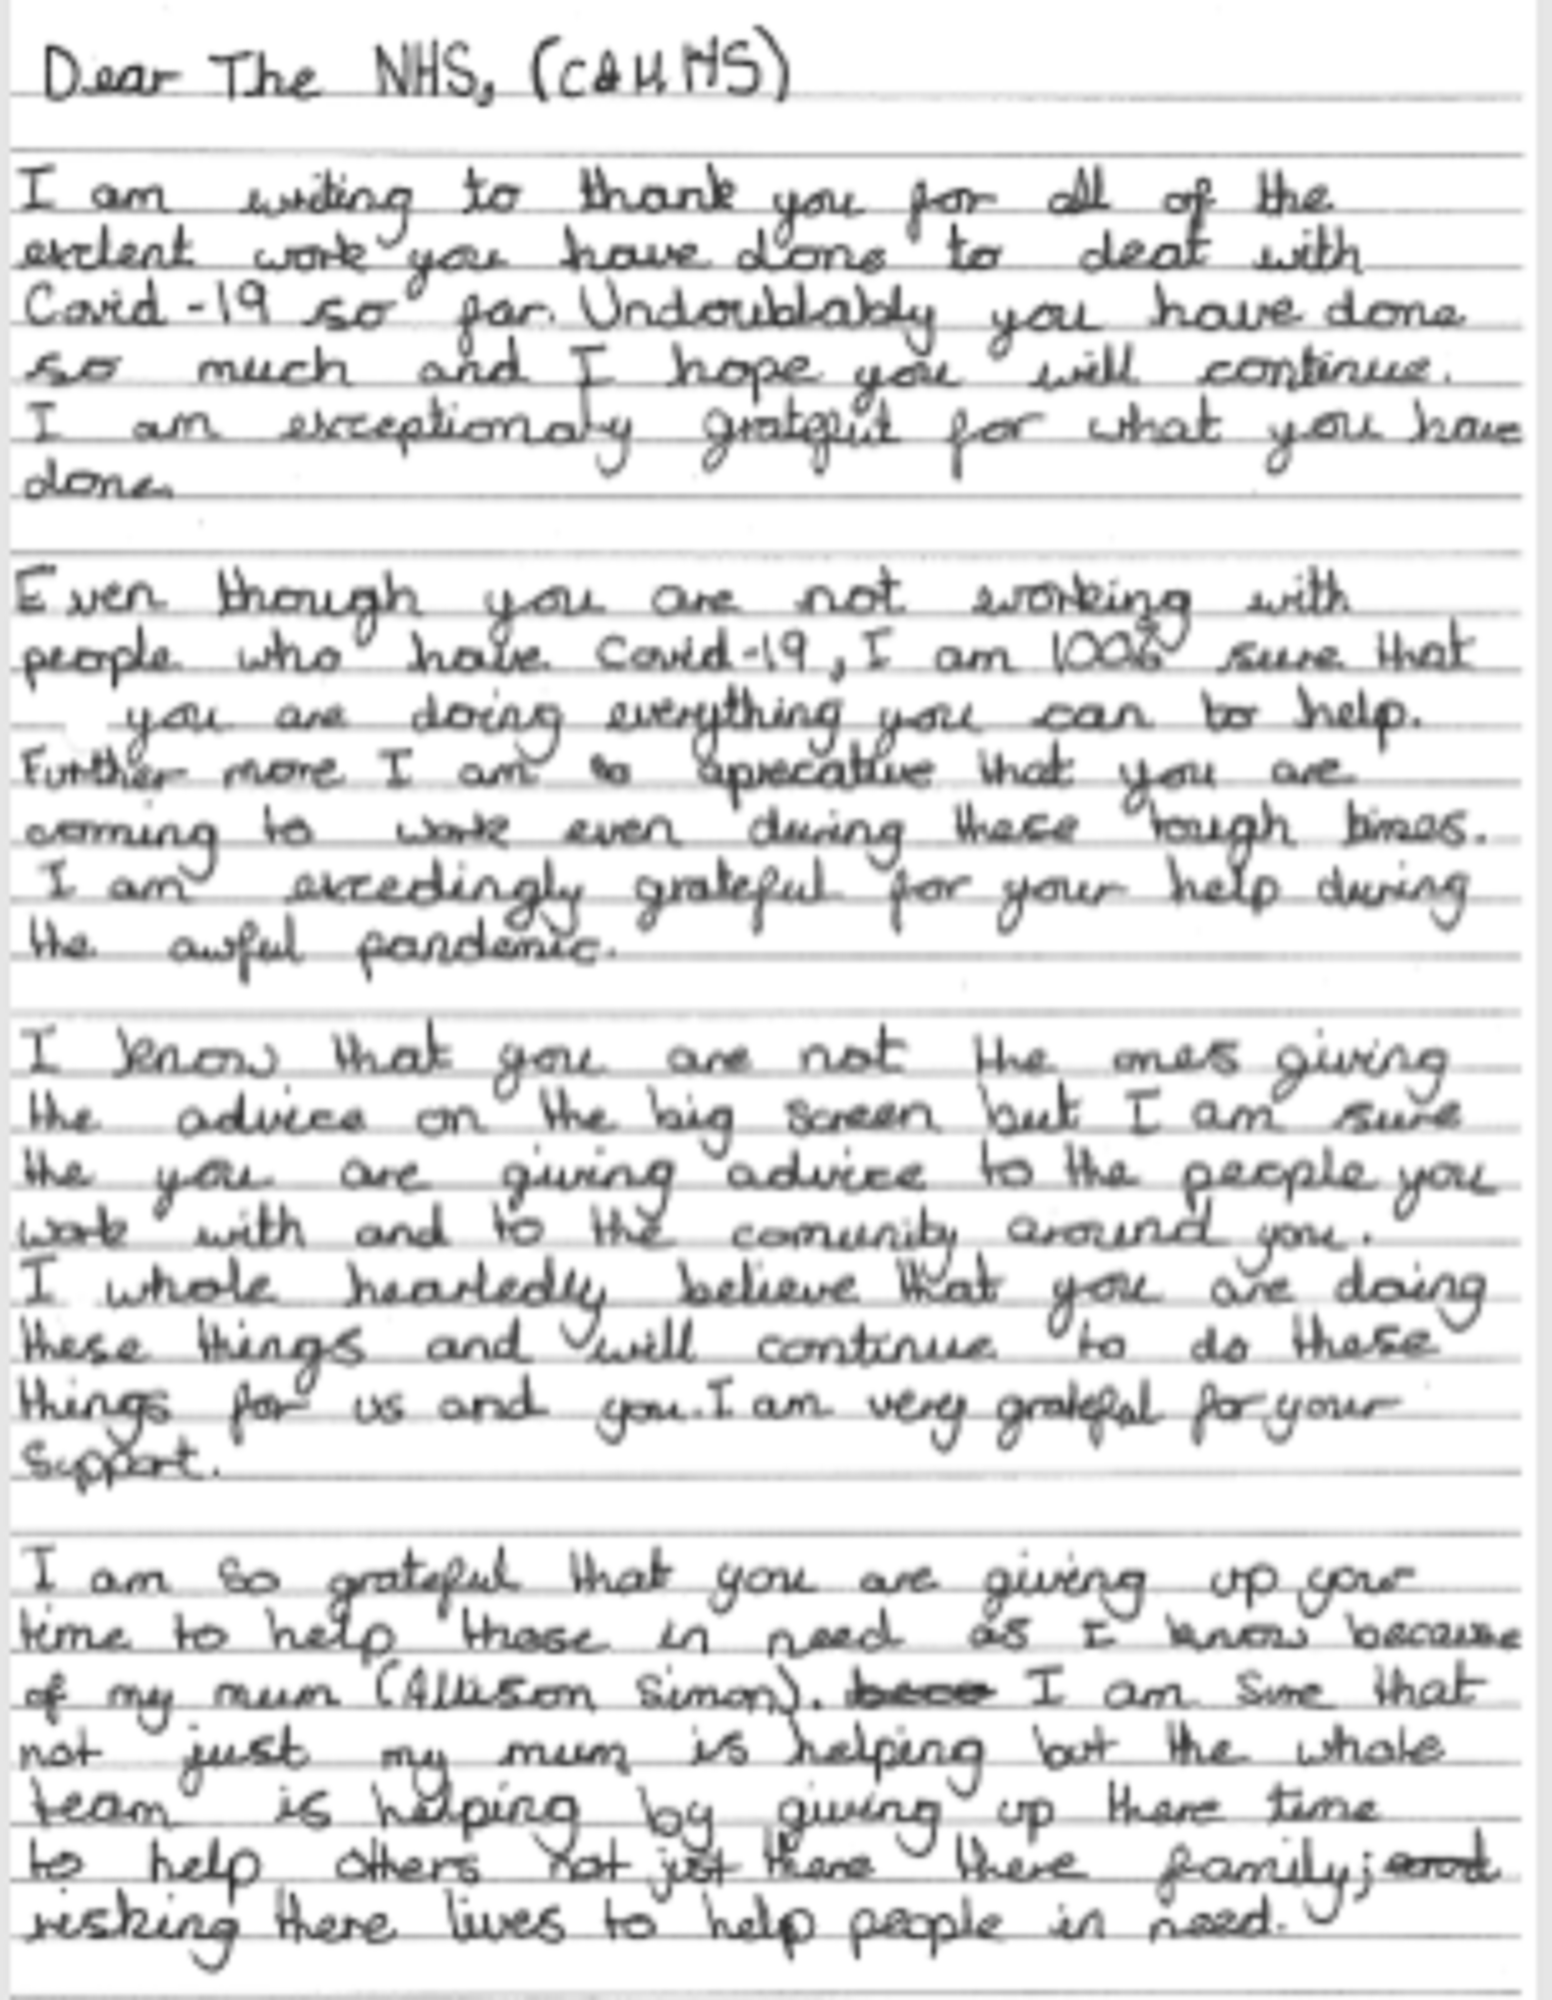 Dear The NHS, (CAMHS)
I am writing to thank you for all of the
exclent work you have done to deal with
Covid-19 so far. Undoublably you have done
so much and I hope you will continue.
I am exceptionaly gratefull for what you have
done.
Even though you are not working with
people who have Covid-19, I am 100% sure that
you are doing everything you can to help.
Further more I am so aprecative that you are
coming to work even during these tough times.
I am excedingly grateful for your help during
the awful pandemic.
I know that you are not the ones giving
the advice on the big screen but I am sure
the you are giving advice to the people you
work with and to the comunity around you.
I whole heartedly believe that you are doing
these things and will continue to do these
things for us and you. I am very grateful for your
support.
I am so grateful that you are giving up your
time to help those in need as I know because
of my mum (Allison Simon). I am sure that
not just my mum is helping but the whole
team is helping by giving up there time
to help others not just there there family; and
risking there lives to help people in need.